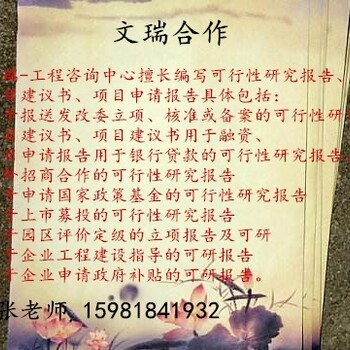 文瑞合作
-工程咨询中心擅长编写可行性研究报告、
建议书、项目申请报告具体包括:
报送发改委立项、核准或备案的可行性研究
建议书、项目建议书用于融资、
申请报告用于银行贷款的可行性研究报告
招商合作的可行性研究报告
申请国家政策基金的可行性研究报告
上市募投的可行性研究报告
园区评价定级的立项报告及可研
企业工程建设指导的可研报告
企业申请政府补贴的可研报告。
张老师 15981841932